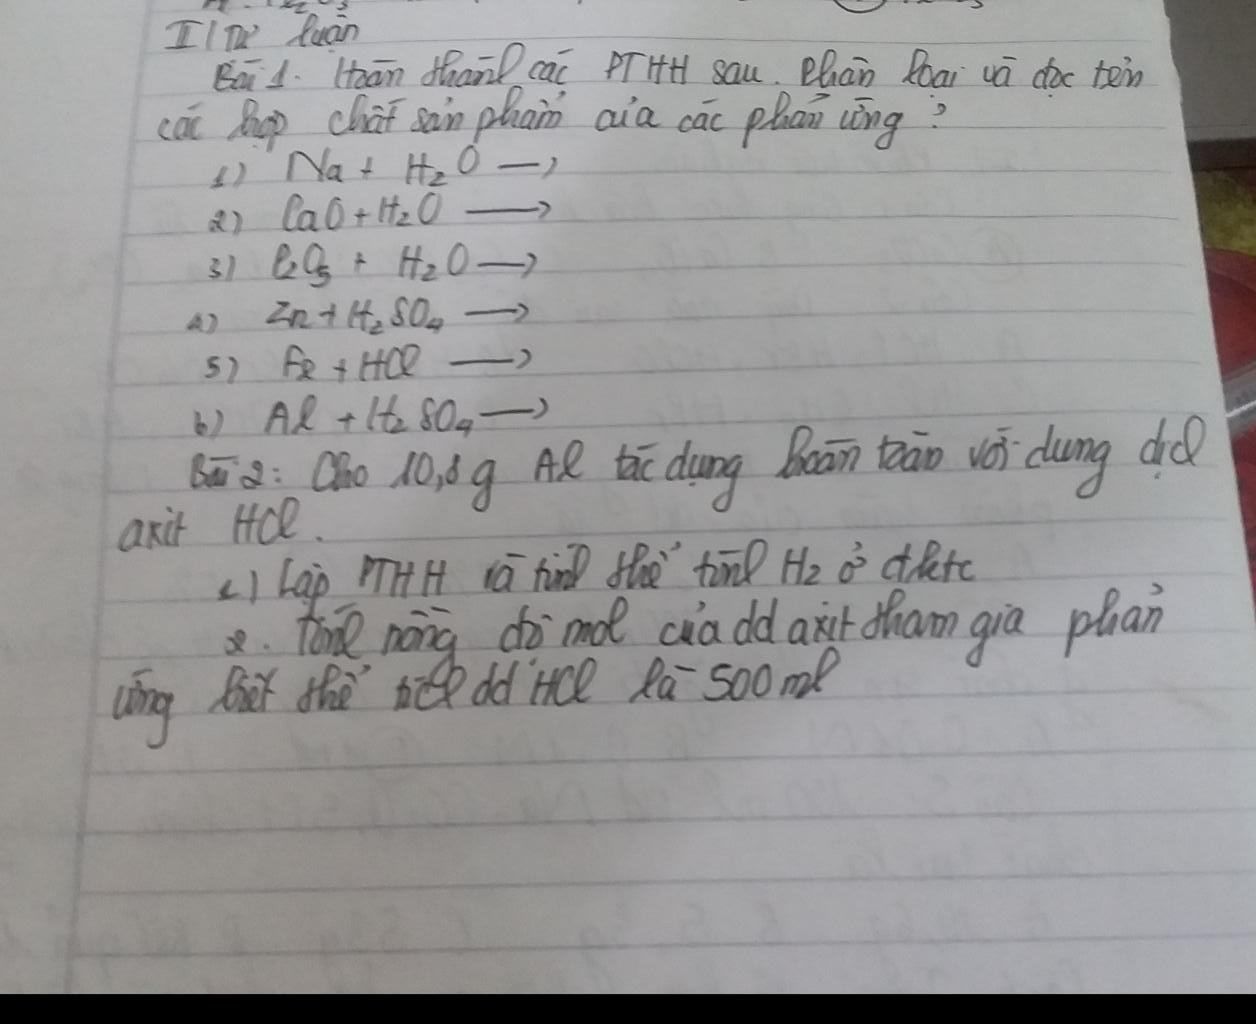 II/ Tự luận
Bài 1. Hoàn thành các PTHH sau. Phân loại và đọc tên
các hợp chất sản phẩm của các phản ứng?
1) Na + H₂O →
2) CaO + H₂O →
3) P₂O₅ + H₂O →
4) Zn + H₂SO₄ →
5) Fe + HCl →
6) Al + H₂SO₄ →
Bài 2: Cho 10,8g Al tác dụng hoàn toàn với dung dịch
axit HCl.
1) Lập PTHH và tính thể tính H₂ ở đktc
2. Tính nồng độ mol của dd axit tham gia phản
ứng biết thể tích dd HCl là 500ml